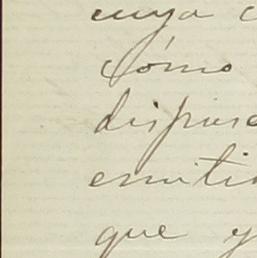 cuya c
Cómo
dispuse
emitir
que y